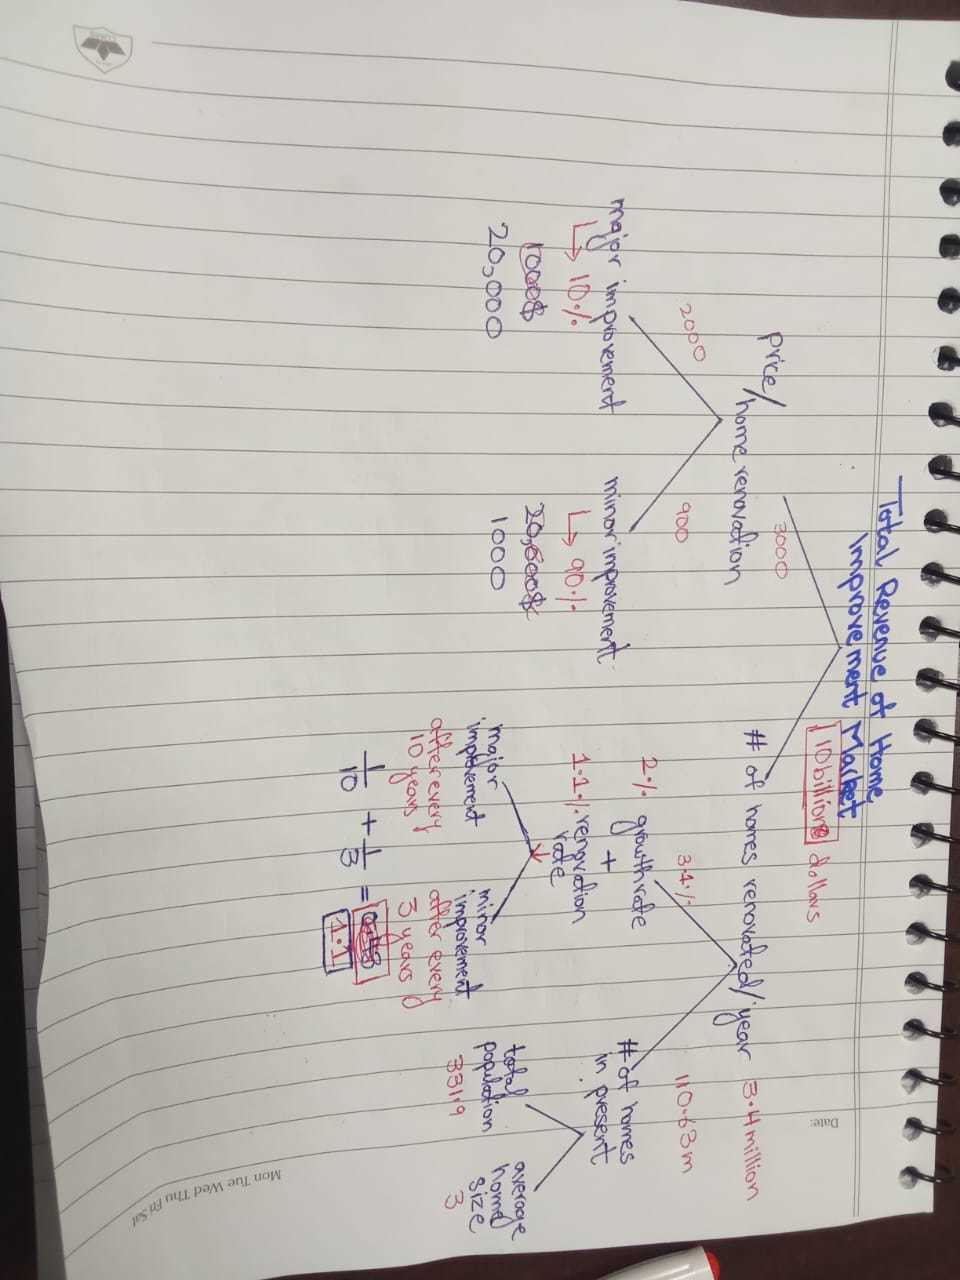 Total Revenue of Home
Improvement Market
10 billion dollars
3000
Price/home renovation
# of homes renovated/year 3.4 million
2000
900
3.4%
110.63m
major improvement
↳ 10%
1000$
20,000
minor improvement
↳ 90%
20,000$
1000
2% growth rate
+
1.1% renovation
rate
# of homes
in present
major
improvement
after every
10 years
minor
improvement
after every
3 years
1/10 + 1/3 =
1.1
total
population
331.9
average
home
size
3
Date:
Mon Tue Wed Thu Fri Sat